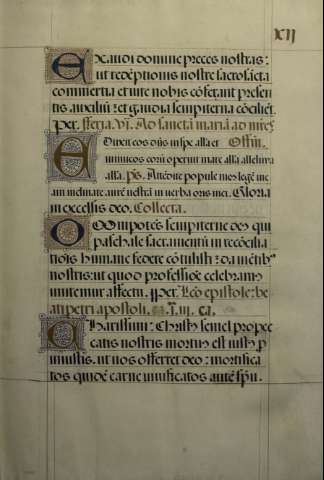 XII
Exaudi domine preces nostras:
ut redẽptionis nostre sacrosãcta
commertia et vite nobis cõferant presen
tis auxiliũ: et gaudia sempiterna cõcilient.
Per. feria. VI. Ad sanctã mariã ad mires
Eduxit eos dñs in spe alla et Offm.
inimicos eorũ operuit mare alla alleluia
alla. p̃s. Attẽdite popule meus legẽ me
am: inclinate aurẽ vestrã in verba oris mei. Gloria
in excelsis deo. Collecta.
Omnipotẽs sempiterne deus qui
paschale sacramentũ in recõcilia
tiõis humane federe cõtulisti: da mẽtibus
nostris: ut quod professiõe celebramus
imitemur affectu. Per. Lcõ epistole: be
ati petri apostoli. I. III. ca.
Charissimi: Christus semel pro pec
catis nostris mortuus est iustus pro
iniustis. ut nos offerret deo: mortifica
tos quidẽ carne vivificatos autẽ spũ.